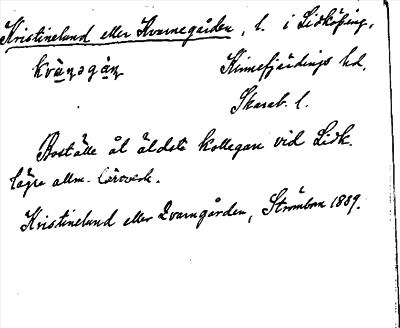 Kristinelund eller Kvarnegården, l. i Lidköping,
kvàṇəgàṇ Kinnefjärdings hd.
Skarab. l.
Boställe åt äldste kollegan vid Lidk.
lägre allm. läroverk.
Kristinelund eller Qvarngården, Strömbom 1889.